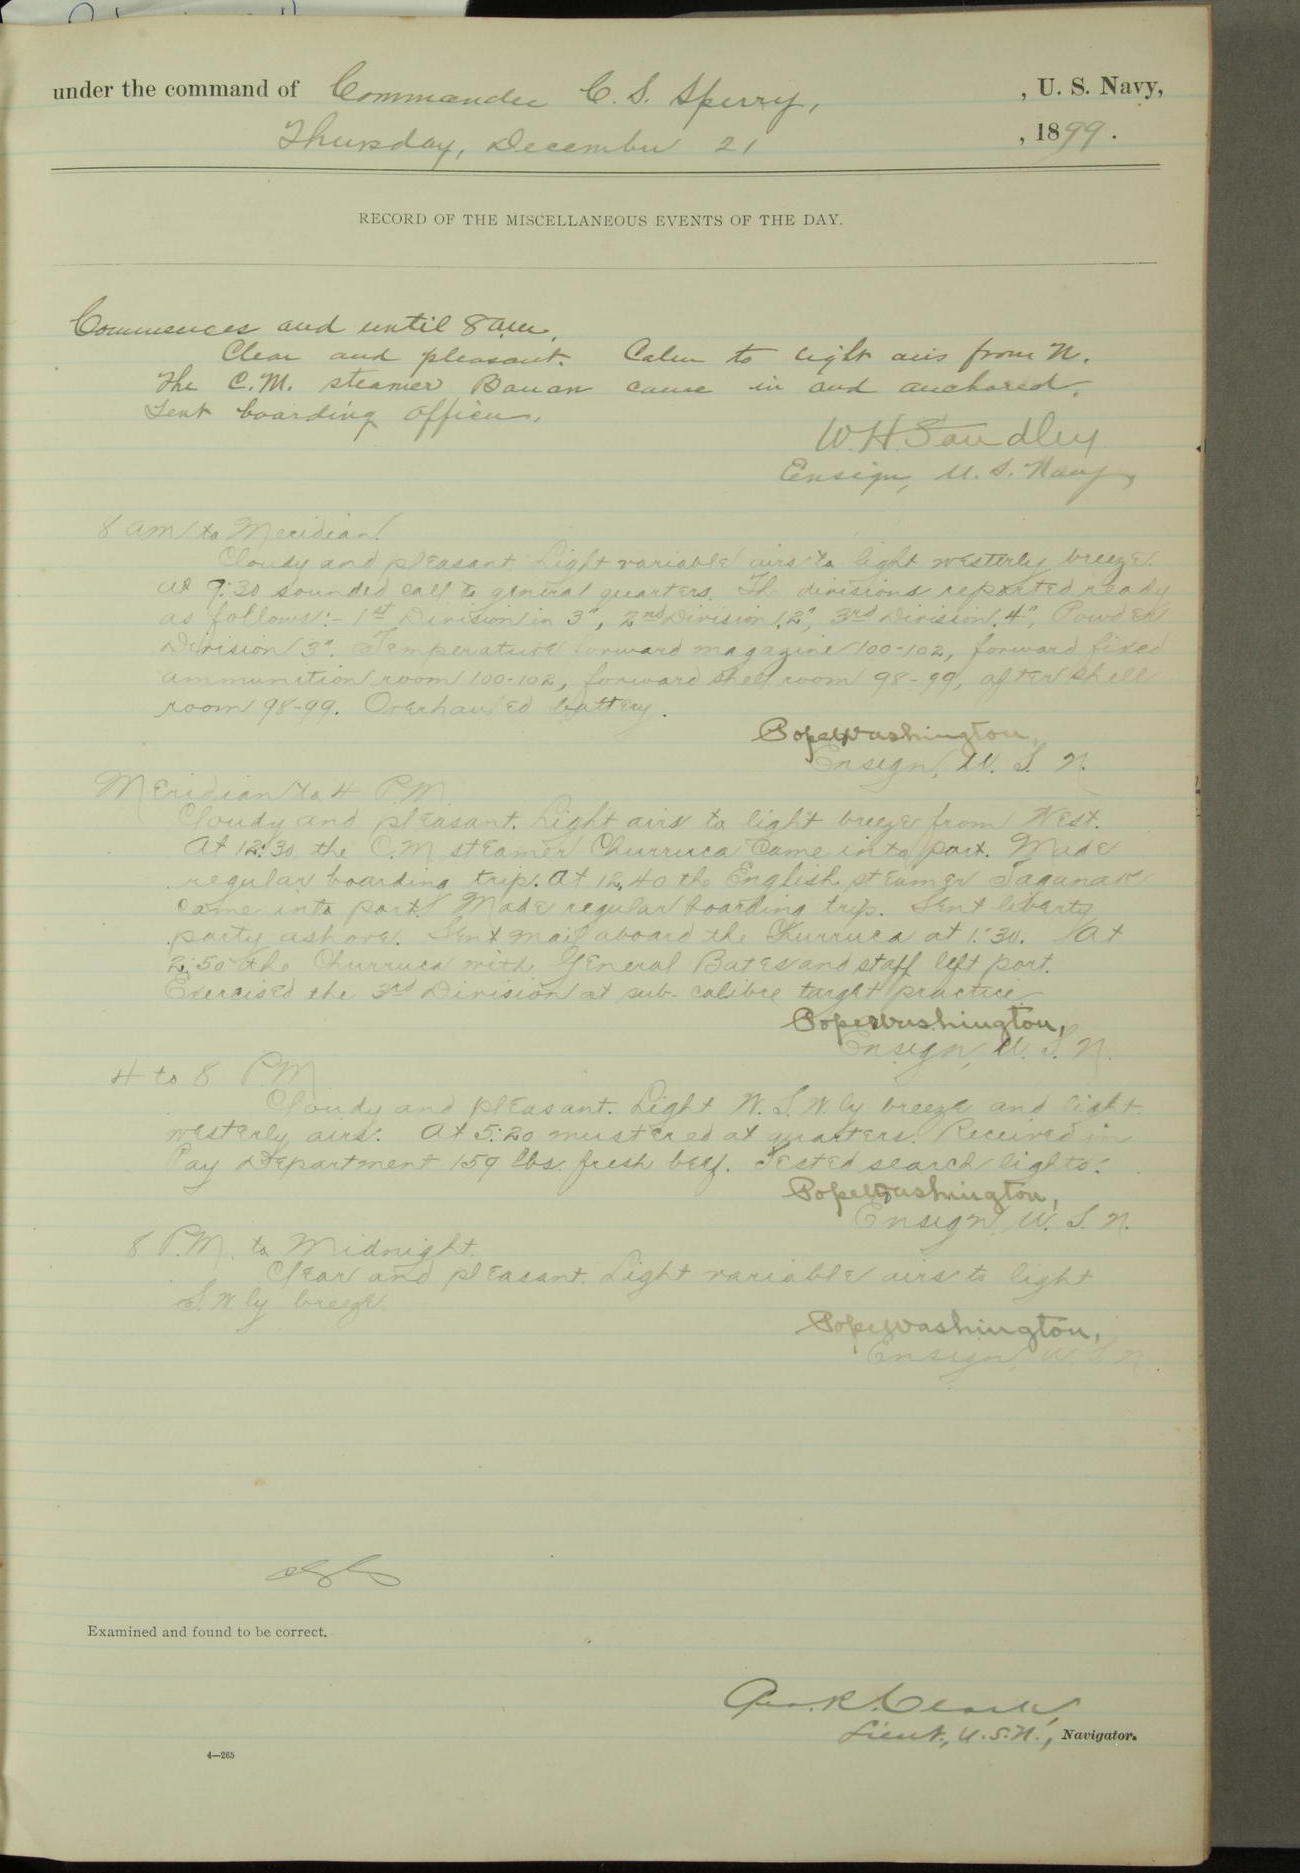 under the command of Commander C. S. Sperry, , U. S. Navy,
Thursday, December 21 , 1899.
RECORD OF THE MISCELLANEOUS EVENTS OF THE DAY.
Commences and until 8 a.m.
Clear and pleasant. Calm to light airs from N.
The C.M. steamer Bauan came in and anchored.
Sent boarding officer.
W. H. Standley
Ensign, U. S. Navy,
8 am to Meridian.
Cloudy and pleasant. Light variable airs to light westerly breeze.
At 9:30 sounded call to general quarters. The divisions reported ready
as follows:- 1st Division in 3", 2nd Division, 2", 3rd Division, 4", Powder
Division 3". Temperature forward magazine 100-102, forward fixed
ammunition room 100-102, forward shell room 98-99, after shell
room 98-99. Overhauled battery.
Pope Washington,
Ensign, U. S. N.
Meridian to 4 P.M.
Cloudy and pleasant. Light airs to light breeze from West.
At 12:30 the C.M steamer Churruca came into port. Made
regular boarding trip. At 12.40 the English steamer Saganak
came into port. Made regular boarding trip. Sent liberty
party ashore. Sent mail aboard the Churruca at 1:30. At
2:50 the Churruca with General Bates and staff left port.
Exercised the 3rd Division at sub-calibre target practice.
Pope Washington,
Ensign, U. S. N.
4 to 8 P.M
Cloudy and pleasant. Light W.S.W.ly breeze and light
westerly airs. At 5:20 mustered at quarters. Received in
Pay Department 159 lbs. fresh beef. Tested search lights.
Pope Washington,
Ensign, U. S. N.
8 P.M. to Midnight.
Clear and pleasant. Light variable airs to light
S.W.ly breeze.
Pope Washington,
Ensign, U. S. N.
Examined and found to be correct.
Geo. R. Clark,
Lieut., U.S.N., Navigator.
4—265